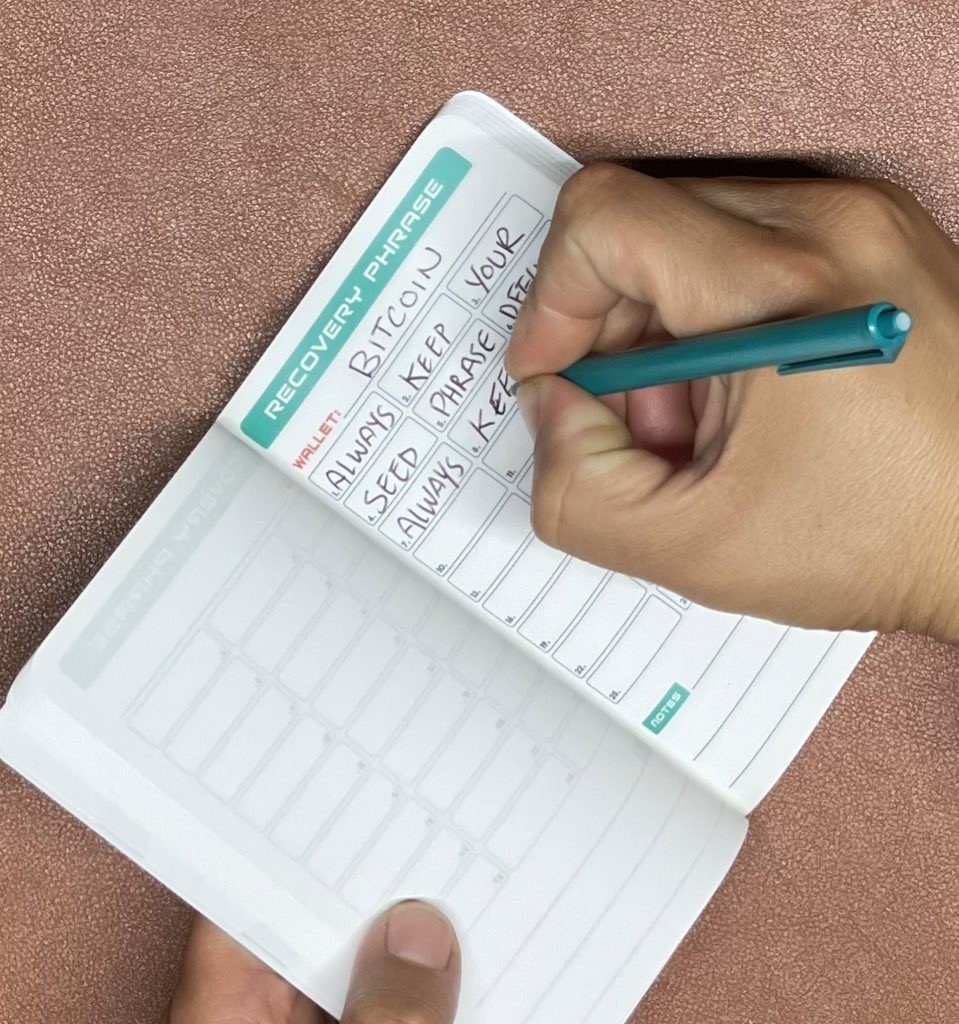 RECOVERY PHRASE
WALLET: BITCOIN
1. ALWAYS 2. KEEP 3. YOUR
4. SEED 5. PHRASE 6.
7. ALWAYS 8. KEE
10. 11.
13.
16.
19.
22.
25.
NOTES